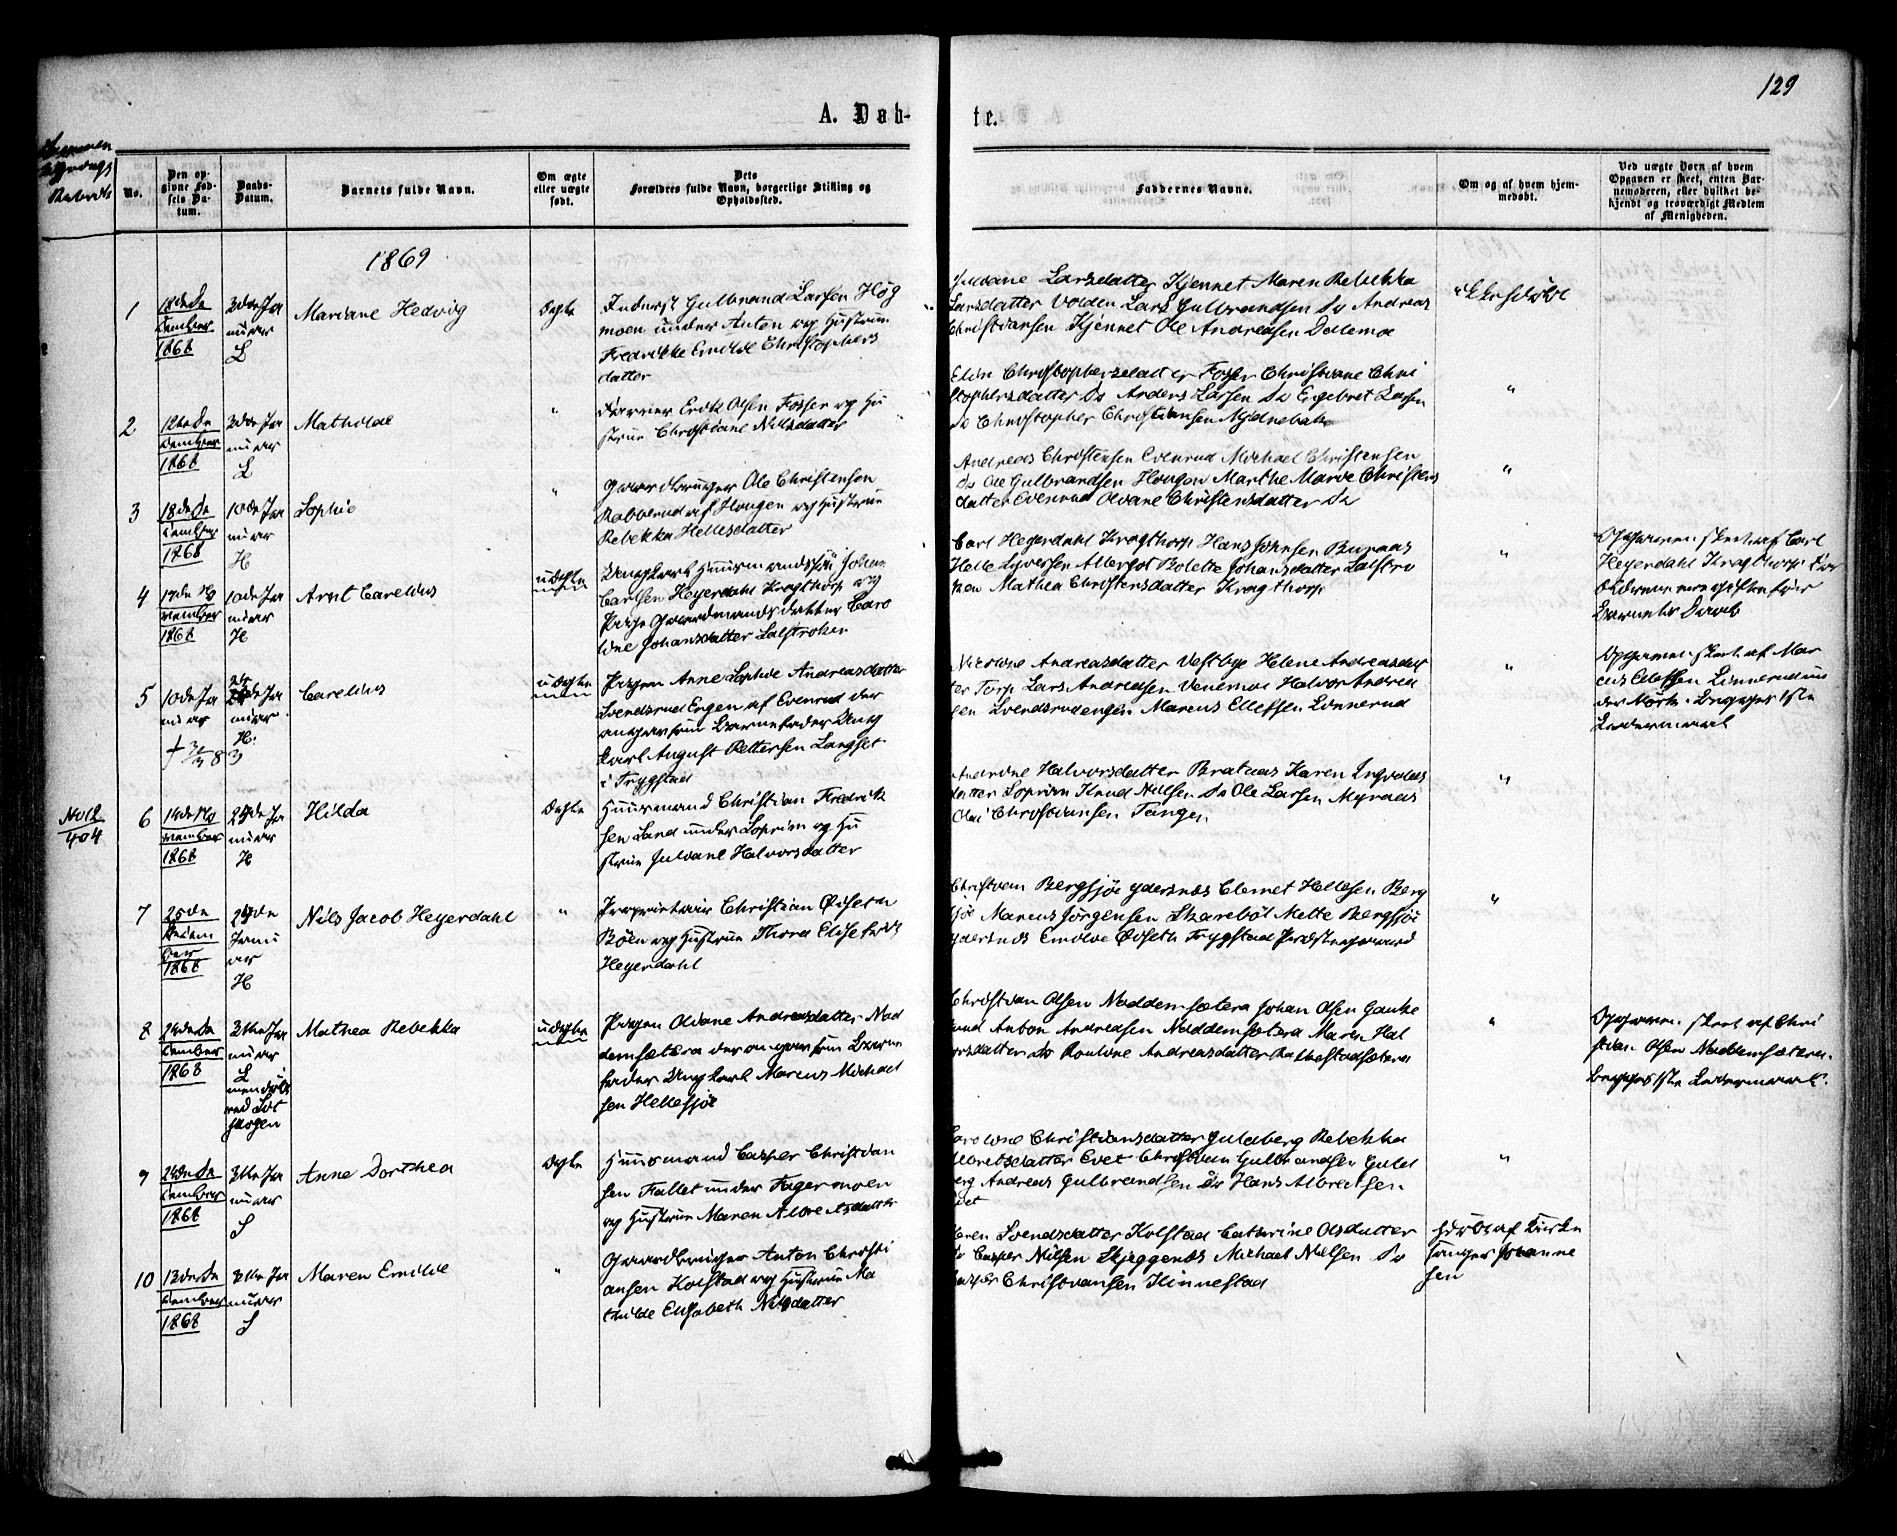 129
A. Døb-
te.
No.
Den op-
givne Fød-
sels Da-
tum.
Daabs-
Datum.
Barnets fulde Navn.
Om ægte
eller uægte
født.
Dets
Forældres fulde Navn, borgerlige Stilling og
Opholdssted.
Faddernes Navne.
Om og af hvem hjem-
medøbt.
Ved uægte Børn af hvem
Opgaven er skeet, enten Bar-
nemoderen, eller hvilket be-
kjendt og troværdigt Medlem
af Menigheden.
1869
1
18de De
cember
1868
3die Ja
nuar
L
Mariane Hedvig
Ægte
Inderst Gulbrand Larsen Høg
moen under Anton og Hustrue
Fredrikke Emilie Christophers
datter
Larsdatter Kjennet Maren Rebekka
Larsdatter Volden Lars Gulbrandsen Do Andreas
Christiansen Kjennet Ole Andreasen Dalemoe
2
12te De
cember
1868
3die Ja
nuar
L
Mathilde
"
Erik Olsen Fosser og Hu
strue Christiane Nilsdatter
Elin Christophersdatter Fosser Christiane Chri
stophersdatter Do Anders Larsen Do Engebret Larsen
Do Christopher Christiansen
"
3
18de De
cember
1868
10de Ja
nuar
H
Sophie
"
Gaardbruger Ole Christensen
Rabberud af Hougen og Hustrue
Rebekka Hellesdatter
Andreas Christensen Evenrud Michael Christensen
Do Ole Gulbrandsen Hougen Marthe Marie Christens
datter Evenrud Oliane Christensdatter Do
"
4
17de No
vember
1868
10de Ja
nuar
H
Arnt Carelius
uægte
Ungkarl Huusmandssøn Johan
Carlsen Heyerdahl Kragthorp og
Pige Gaardmandsdatter Caro
line Johansdatter Lalstroken
Carl Heyerdahl Kragthorp Hans Johnsen
Helle Syversen Bolette Johansdatter Lalstro
ken Mathea Christensdatter Kragthorp
"
Opgaven skeet af Carl
Heyerdahl Kragthorp
Barnets Daab
5
10de Ja
nuar
24de Ja
nuar
H.
Carelius
uægte
Pigen Anne Sophie Andreasdatter
Svendsrud Engen af Evenrud der
angav som Barnefader Ung
karl August Pettersen Langset
i Trygstad
Nicoline Andreasdatter Vestbye Helene Andreasdat
ter Torp Lars Andreasen Venemoe Halvor Andrea
sen Svendsrudengen Marcus Ellefsen Linnerud
"
Opgaven skeet af Mar
cus Ellefsen Linnerud un
der Mørk. Begges 1ste
Leiermaal
No 12
404
6
14de No
vember
1868
24de Ja
nuar
H
Hilda
Ægte
Huusmand Christian Fredrik
sen Land under Soprim og Hu
strue Juliane Halvorsdatter
Andrine Halvorsdatter Brataas Karen Ingvolds
datter Soprim Knud Nilsen Do Ole Larsen Myraas
Christiansen Tangen
"
7
25de
Decem
ber
1868
24de
Janu
ar
H
Nils Jacob Heyerdahl
"
Proprietair Christian Øiseth
Bøen og Hustrue Thora Elisabeth
Heyerdahl
Christian Bergsjøe Ydersnes Clemet Hellesen Berg
sjøe Marcus Jørgensen Skarebøl Mette Bergsjøe
Ydersnes Emilie Øiseth Trygstad Præstegaard
"
8
24de De
cember
1868
31te Ja
nuar
L
Mathea Rebekka
uægte
Pigen Oliane Andreasdatter Nad
demsætera der angav som Barne
fader Ungkarl Marcus Michael
sen Hellesjøe
Christian Olsen Naddemsætera Johan Olsen Gauke
rud Anton Andreasen Naddemsætera Maren Hal
vorsdatter Do Pauline Andreasdatter Rakkestadsætera
"
Opgaven skeet af Chri
stian Olsen Naddemsætera.
Begges 1ste Leiermaal.
9
24de De
cember
1868
31te Ja
nuar
S
Anne Dorthea
Ægte
Huusmand Casper Christian
sen Fallet under Fagermoen
og Hustrue Maren Albretsdatter
Caroline Christiansdatter Guldberg Rebekka
Albretsdatter Evet Christian Gulbrandsen Guld
berg Andreas Gulbrandsen Do Hans Albretsen
"
10
13de De
cember
1868
31te Ja
nuar
S
Maren Emilie
"
Gaardbruger Anton Christi
ansen Kolstad og Hustrue Ma
thilde Elisabeth Nilsdatter
Svendsdatter Kolstad Cathrine Olsdatter
Do Casper Nilsen Skjeggenes Michael Nilsen Do
Casper Christiansen Kinnestad
Døbt af Kirke
sanger Johanne
sen